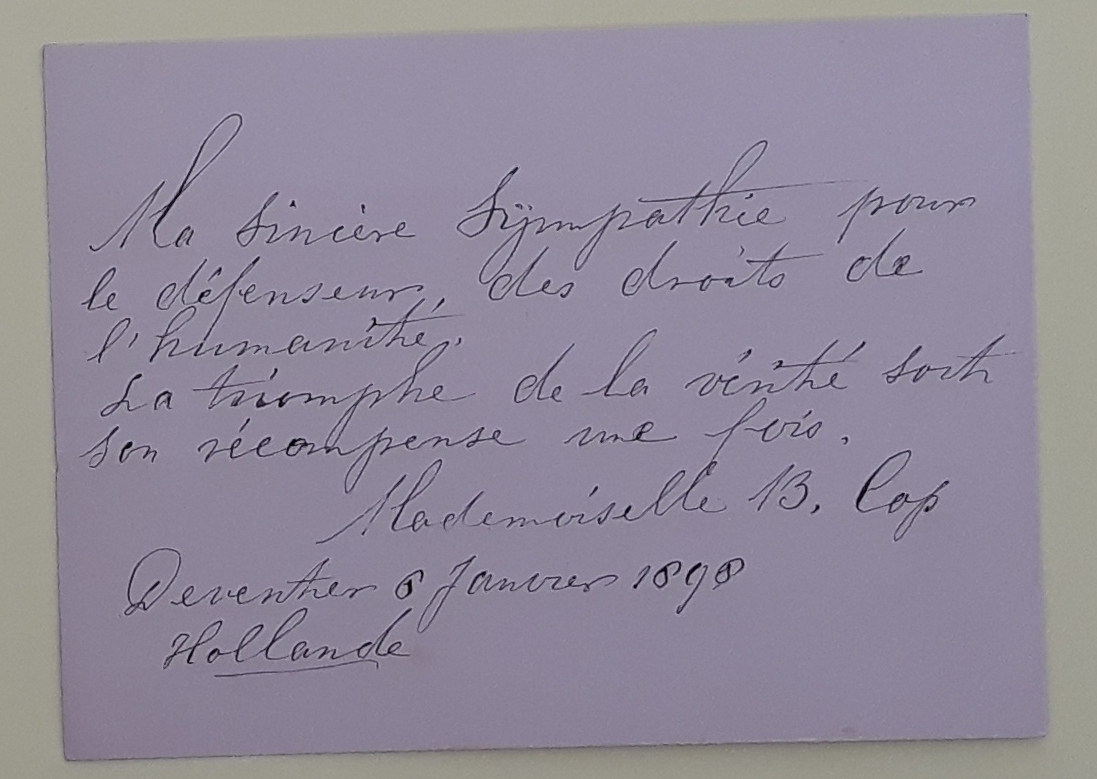 Ma sincère Sÿmpathie pour
le défenseur, des droits de
l'humanité.
La triomphe de la vérité soit
son récompense une fois.
Mademoiselle B. Cop
Deventher 8 Janvier 1898
Hollande